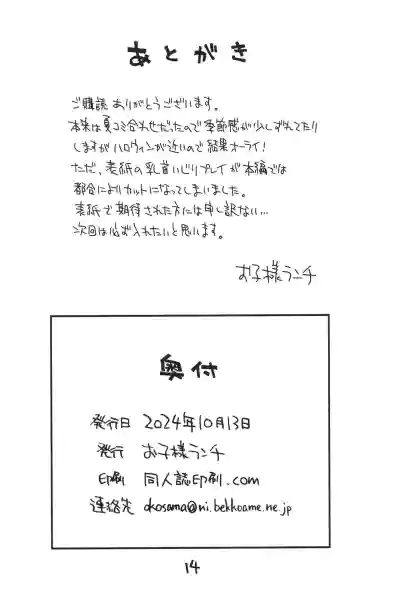 あとがき
ご購読ありがとうございます。
本来は夏コミ合わせだったので季節感が少しずれてたり
しますがハロウィンが近いので結果オーライ!
ただ、表紙の乳首いじりプレイが本編では
都合によりカットになってしまいました。
表紙で期待された方には申し訳ない…
次回は必ず入れたいと思います。
お子様ランチ
奥付
発行日 2024年10月13日
発行 お子様ランチ
印刷 同人誌印刷.com
連絡先 okosama@ni.bekkoame.ne.jp
14